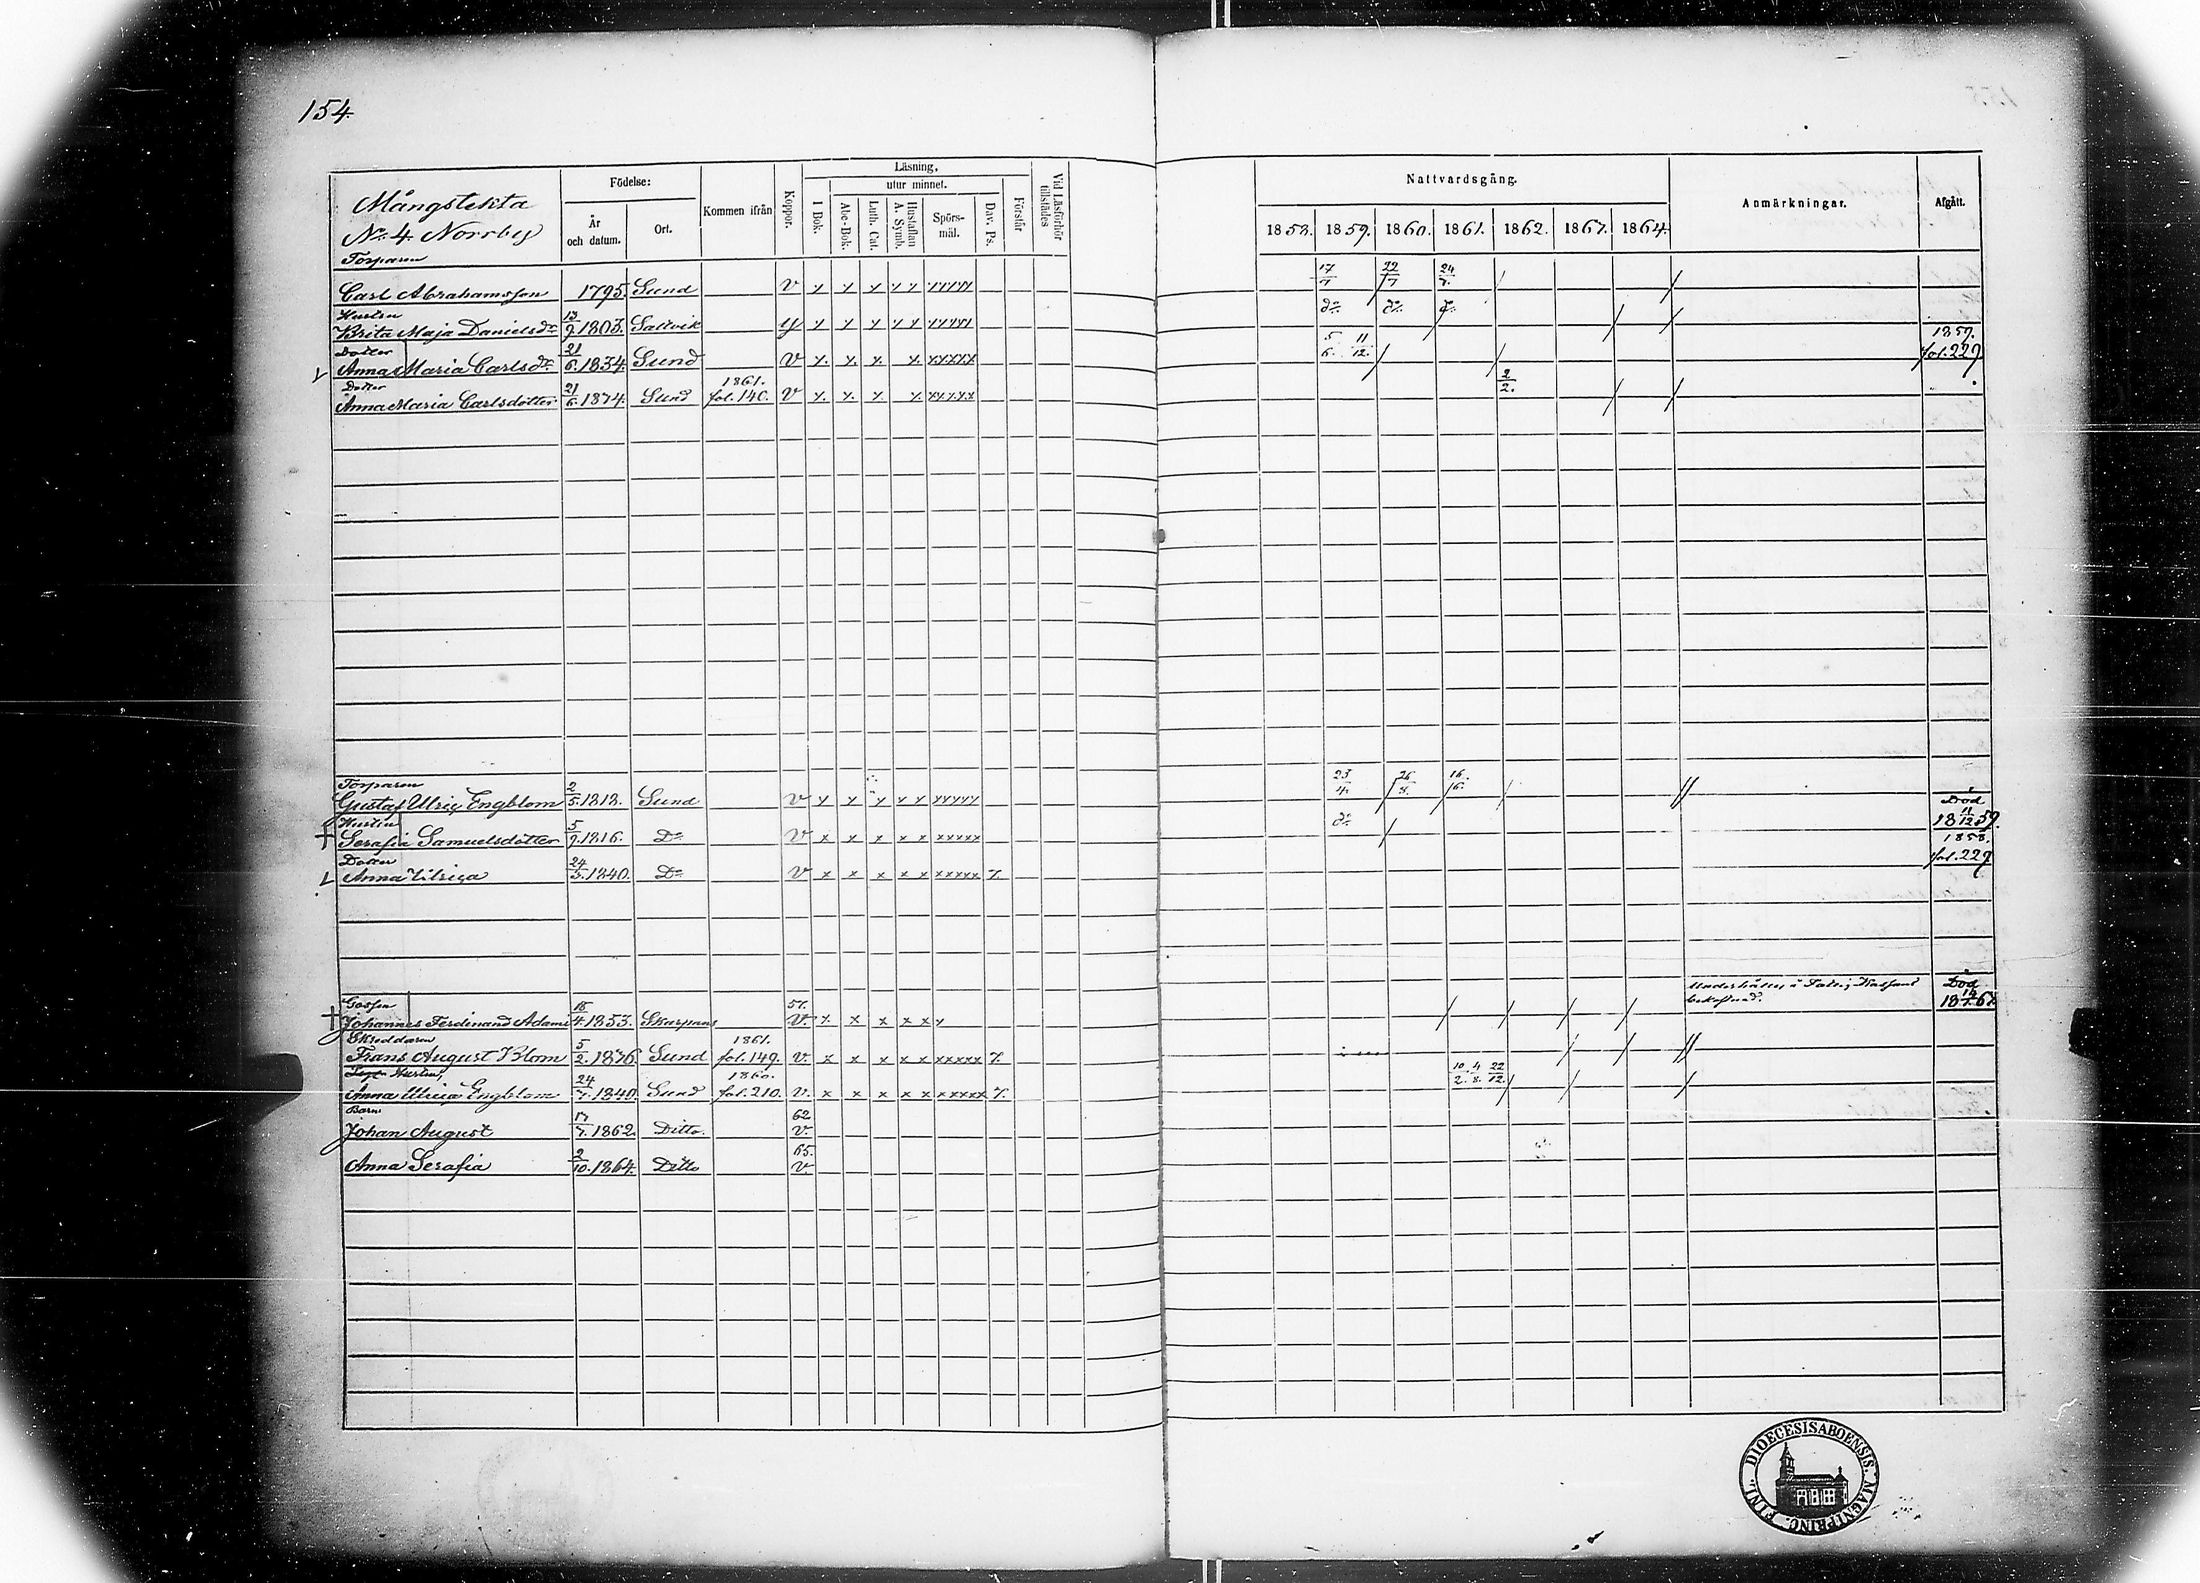 154.
Mångstekta
No. 4. Norrby
Födelse:
År och datum.
Ort.
Kommen ifrån
Koppor.
Läsning,
utur minnet.
I Bok.
Abc-Bok.
Luth. Cat.
Hustaflan A. Symb.
Spörsmål.
Dav. Ps.
Förstår
Vid Läsförhör tillstädes
Nattvardsgång.
1858. 1859. 1860. 1861. 1862. 1863. 1864.
Anmärkningar.
Afgått.
Torparen
Carl Abrahamsson 1795. Sund v 17/7 22/7 24/7.
Hustru
Brita Maja Danielsdr 13/9 1803. Saltvik do do do
Dotter 1859.
Anna Maria Carlsdr 21/6. 1834. Sund v 5/6. 11/12. fol. 229
Dotter 1861.
Anna Maria Carlsdotter 21/6. 1834. Sund fol. 140. v 2/2.
Torparen
Gustaf Ulric Engblom 2/5. 1818. Sund v 23/4. 16/6.
Hustru Död
Serafia Samuelsdotter 5/9. 1816. Do v do 18 11/12 59.
Dotter 1858.
Anna Ulrica 24/5. 1840. Do v fol. 229
Gossen 57. Död
Johannes Ferdinand Adams 18/4. 1853. Skarpans v.
Skreddaren 1861.
Frans August Blom 5/2. 1836. Sund fol. 149. v.
Hustru, 1860.
Anna Ulrica Engblom 24/5. 1840. Sund fol. 210. v. 10/2. 4/8. 22/12.
Barn 62
Johan August 17/7. 1862. Ditto. v
65.
Anna Serafia 2/10. 1864. Ditto v
DIOECESIS ABOENSIS. MAGNI PRINC. FINL.